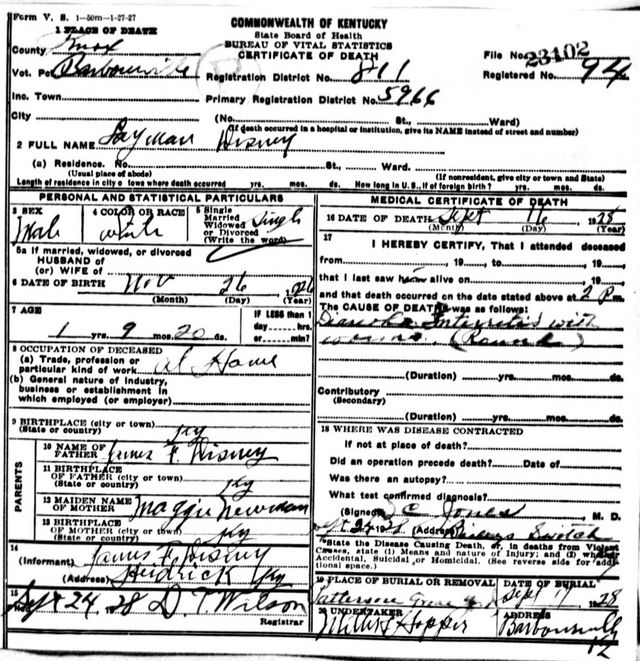 Form V. S. 1-50m-1-27-27
COMMONWEALTH OF KENTUCKY
State Board of Health
BUREAU OF VITAL STATISTICS
CERTIFICATE OF DEATH
1 PLACE OF DEATH
County Knox
Vot. Pct Barbourville
Inc. Town
City
File No. 23102
Registered No. 94
Registration District No. 811
Primary Registration District No. 5966
(No. St., Ward)
(If death occurred in a hospital or institution, give its NAME instead of street and number)
2 FULL NAME Layman Disney
(a) Residence. No. St., Ward.
(Usual place of abode) (If nonresident, give city or town and State)
Length of residence in city or town where death occurred yrs. mos. ds. How long in U. S., if of foreign birth? yrs. mos. ds.
PERSONAL AND STATISTICAL PARTICULARS
3 SEX Male
4 COLOR OR RACE white
5 Single
Married
Widowed
or Divorced
(Write the word) Single
5a If married, widowed, or divorced
HUSBAND of
(or) WIFE of
6 DATE OF BIRTH Nov 26 1926
(Month) (Day) (Year)
7 AGE
1 yrs. 9 mos. 20 ds.
IF LESS than 1
day, hrs.
or min.?
8 OCCUPATION OF DECEASED
(a) Trade, profession or
particular kind of work at Home
(b) General nature of industry,
business or establishment in
which employed (or employer)
9 BIRTHPLACE (city or town)
(State or country) Ky
PARENTS
10 NAME OF
FATHER James F. Disney
11 BIRTHPLACE
OF FATHER (city or town)
(State or country) Ky
12 MAIDEN NAME
OF MOTHER Maggie Newman
13 BIRTHPLACE
OF MOTHER (city or town)
(State or country) Ky
14
(Informant) James F. Disney
(Address) Heidrick Ky
15
Filed Sept 24, 1928 D T Wilson
Registrar
MEDICAL CERTIFICATE OF DEATH
16 DATE OF DEATH Sept 16 1928
(Month) (Day) (Year)
17
I HEREBY CERTIFY, That I attended deceased
from , 19 , to , 19
that I last saw him alive on , 19
and that death occurred on the date stated above at 2 P m.
The CAUSE OF DEATH was as follows:
with
(Round)
(Duration) yrs. mos. ds.
Contributory
(Secondary)
(Duration) yrs. mos. ds.
18 WHERE WAS DISEASE CONTRACTED
If not at place of death?
Did an operation precede death? Date of
Was there an autopsy?
What test confirmed diagnosis?
(Signed) C Jones M. D.
1928 (Address) Switch
*State the Disease Causing Death, or, in deaths from Violent
Causes, state (1) Means and nature of Injury; and (2) whether
Accidental, Suicidal or Homicidal. (See reverse side for addi-
tional space.)
19 PLACE OF BURIAL OR REMOVAL
DATE OF BURIAL
Patterson Sept 17 1928
20 UNDERTAKER
Hopper
ADDRESS
Barbourville
Ky